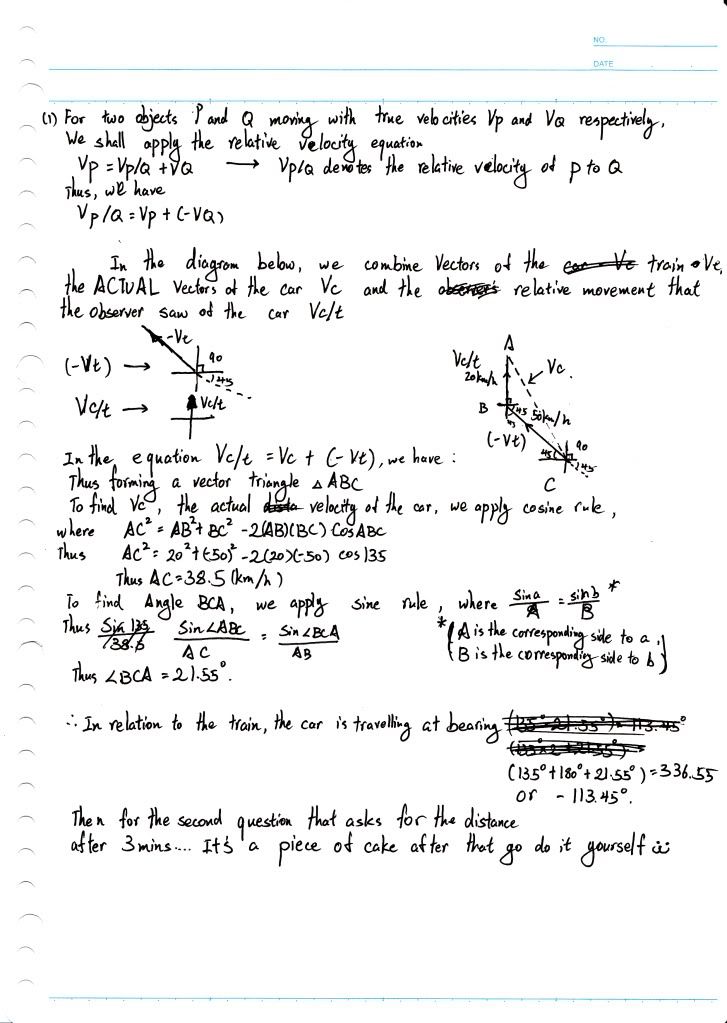 NO.
DATE
(1) For two objects P and Q moving with true velocities Vp and VQ respectively,
We shall apply the relative velocity equation
Vp = Vp/Q + VQ → Vp/Q denotes the relative velocity of p to Q
Thus, we have
Vp/Q = Vp + (-VQ)
In the diagram below, we combine Vectors of the car Vc train Vt,
the ACTUAL Vectors of the car Vc and the relative movement that
the observer saw of the car Vc/t
-Vt
(-Vt) → 90
45
Vc/t → Vc/t
A
Vc/t Vc
20km/h
B 45 50km/h
45
(-Vt) 90
45 45
C
In the equation Vc/t = Vc + (-Vt), we have :
Thus forming a vector triangle △ ABC
To find Vc, the actual velocity of the car, we apply cosine rule,
where AC² = AB² + BC² - 2(AB)(BC) Cos ABC
Thus AC² = 20² + (-50)² - 2(20)(-50) cos 135
Thus AC = 38.5 (km/h)
To find Angle BCA, we apply sine rule, where Sin a / A = sin b / B *
Thus Sin 135 / 38.5 Sin ∠ABC / AC = Sin ∠BCA / AB
* (A is the corresponding side to a,
B is the corresponding side to b)
Thus ∠BCA = 21.55°.
∴ In relation to the train, the car is travelling at bearing (135° - 21.55°) = 113.45°
(135° + 180° + 21.55°) = 336.55
or - 113.45°.
Then for the second question that asks for the distance
after 3 mins.... It's a piece of cake after that go do it yourself ü